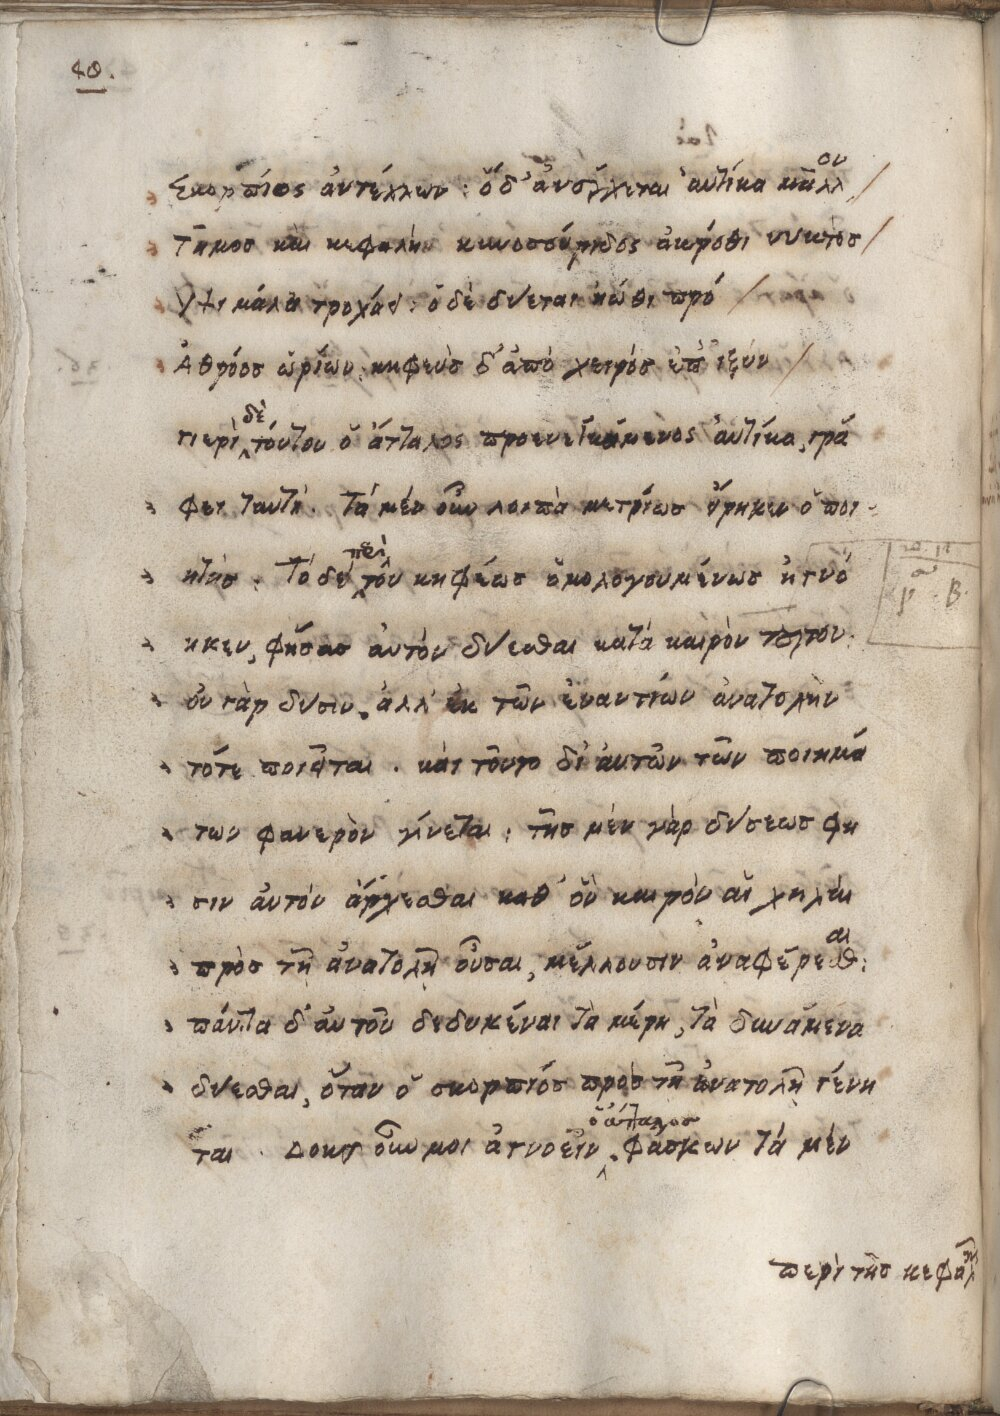 40.
Σκορπίος ἀντέλλων· ὅδ' ἀνέρχεται αὐτίκα μᾶλλον
Τῆμος καὶ κεφαλὴν κυνοσουρίδος ἀκρόθι νυκτὸς
Ὕψι μάλα τροχάει· ὁ δὲ δύεται ἠώθι πρό
Ἀθρόος ὠρίων, κηφεὺς δ' ἀπὸ χειρὸς ἐπ' ἰξύν
περὶ δὲ τούτου ὁ ἄτταλος προενεγκάμενος αὐτίκα, γρά
φει ταυτί. Τὰ μὲν οὖν λοιπὰ μετρίως εἴρηκεν ὁ ποι-
ητής. Τὸ δὲ περὶ τοῦ κηφέως ὁμολογουμένως ἠγνό
ηκεν, φήσας αὐτὸν δύεσθαι κατὰ καιρὸν τοῦτον.
οὐ γὰρ δύσιν, ἀλλ' ἐκ τῶν ἐναντίων ἀνατολὴν
τότε ποιεῖται. καὶ τοῦτο δι' αὐτῶν τῶν ποιημά
των φανερὸν γίνεται· τῆς μὲν γὰρ δύσεως φη
σιν αὐτὸν ἄρχεσθαι καθ' ὃν καιρὸν αἱ χηλαὶ
πρὸς τῇ ἀνατολῇ οὖσαι, μέλλουσιν ἀναφέρεσθαι·
πάντα δ' αὐτοῦ δεδυκέναι τὰ μέρη, τὰ δυνάμενα
δύεσθαι, ὅταν ὁ σκορπιὸς πρὸς τῇ ἀνατολῇ γένη
ται. Δοκεῖ οὖν μοι ἀγνοεῖν ὁ ἄτταλος, φάσκων τὰ μὲν
περὶ τῆς κεφαλῆς